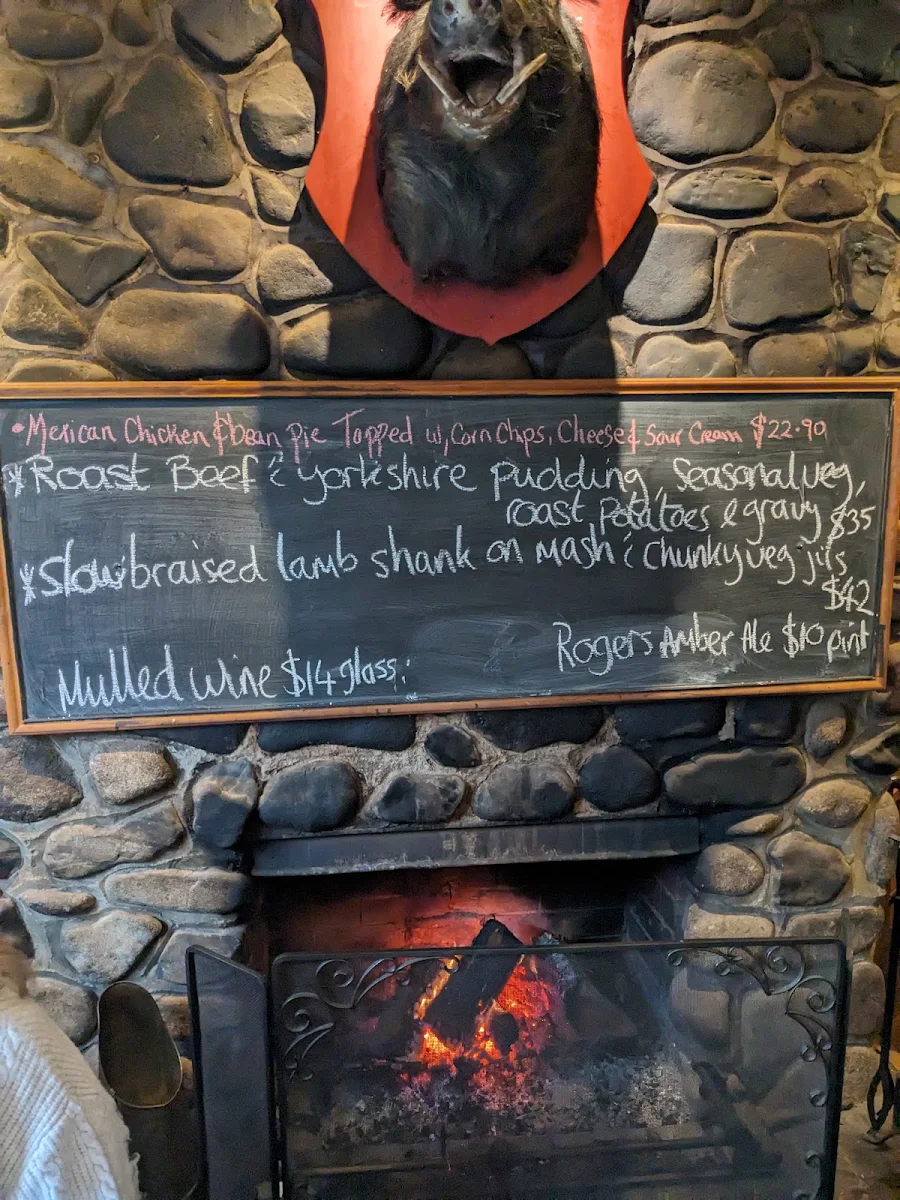 • Mexican Chicken & bean pie Topped w, Corn Chips, Cheese & Sour Cream $22.90
* Roast Beef & yorkshire pudding, Seasonal veg,
roast potatoes & gravy $35
* Slow braised lamb shank on mash & chunky veg jus
$42
Rogers Amber Ale $10 pint
Mulled wine $14 glass.